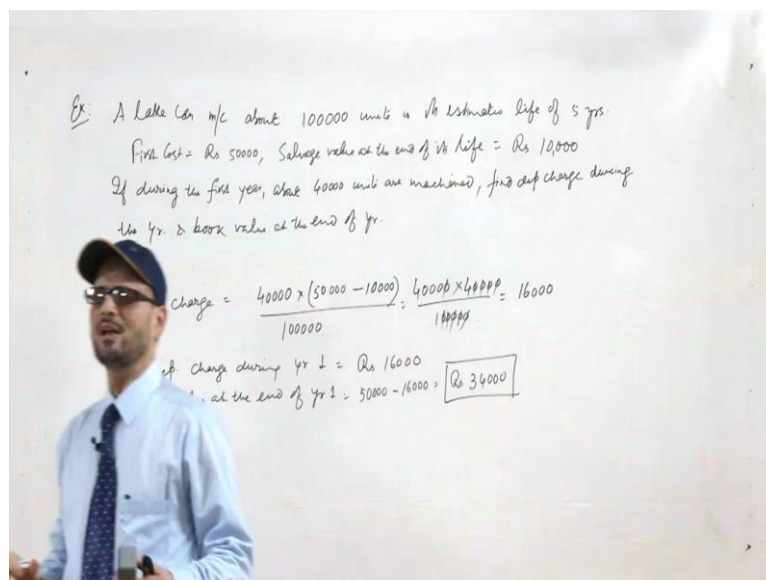 Ex: A lathe can m/c about 100000 units in its estimated life of 5 yrs.
First Cost = Rs 50000, Salvage value at the end of its life = Rs 10,000
If during the first year, about 40000 units are machined, find dep charge during
the yr. & book value at the end of yr.
charge = 40000 x (50000 - 10000) / 100000 = 40000 x 40000 / 100000 = 16000
charge during yr 1 = Rs 16000
at the end of yr 1 = 50000 - 16000 = Rs 34000